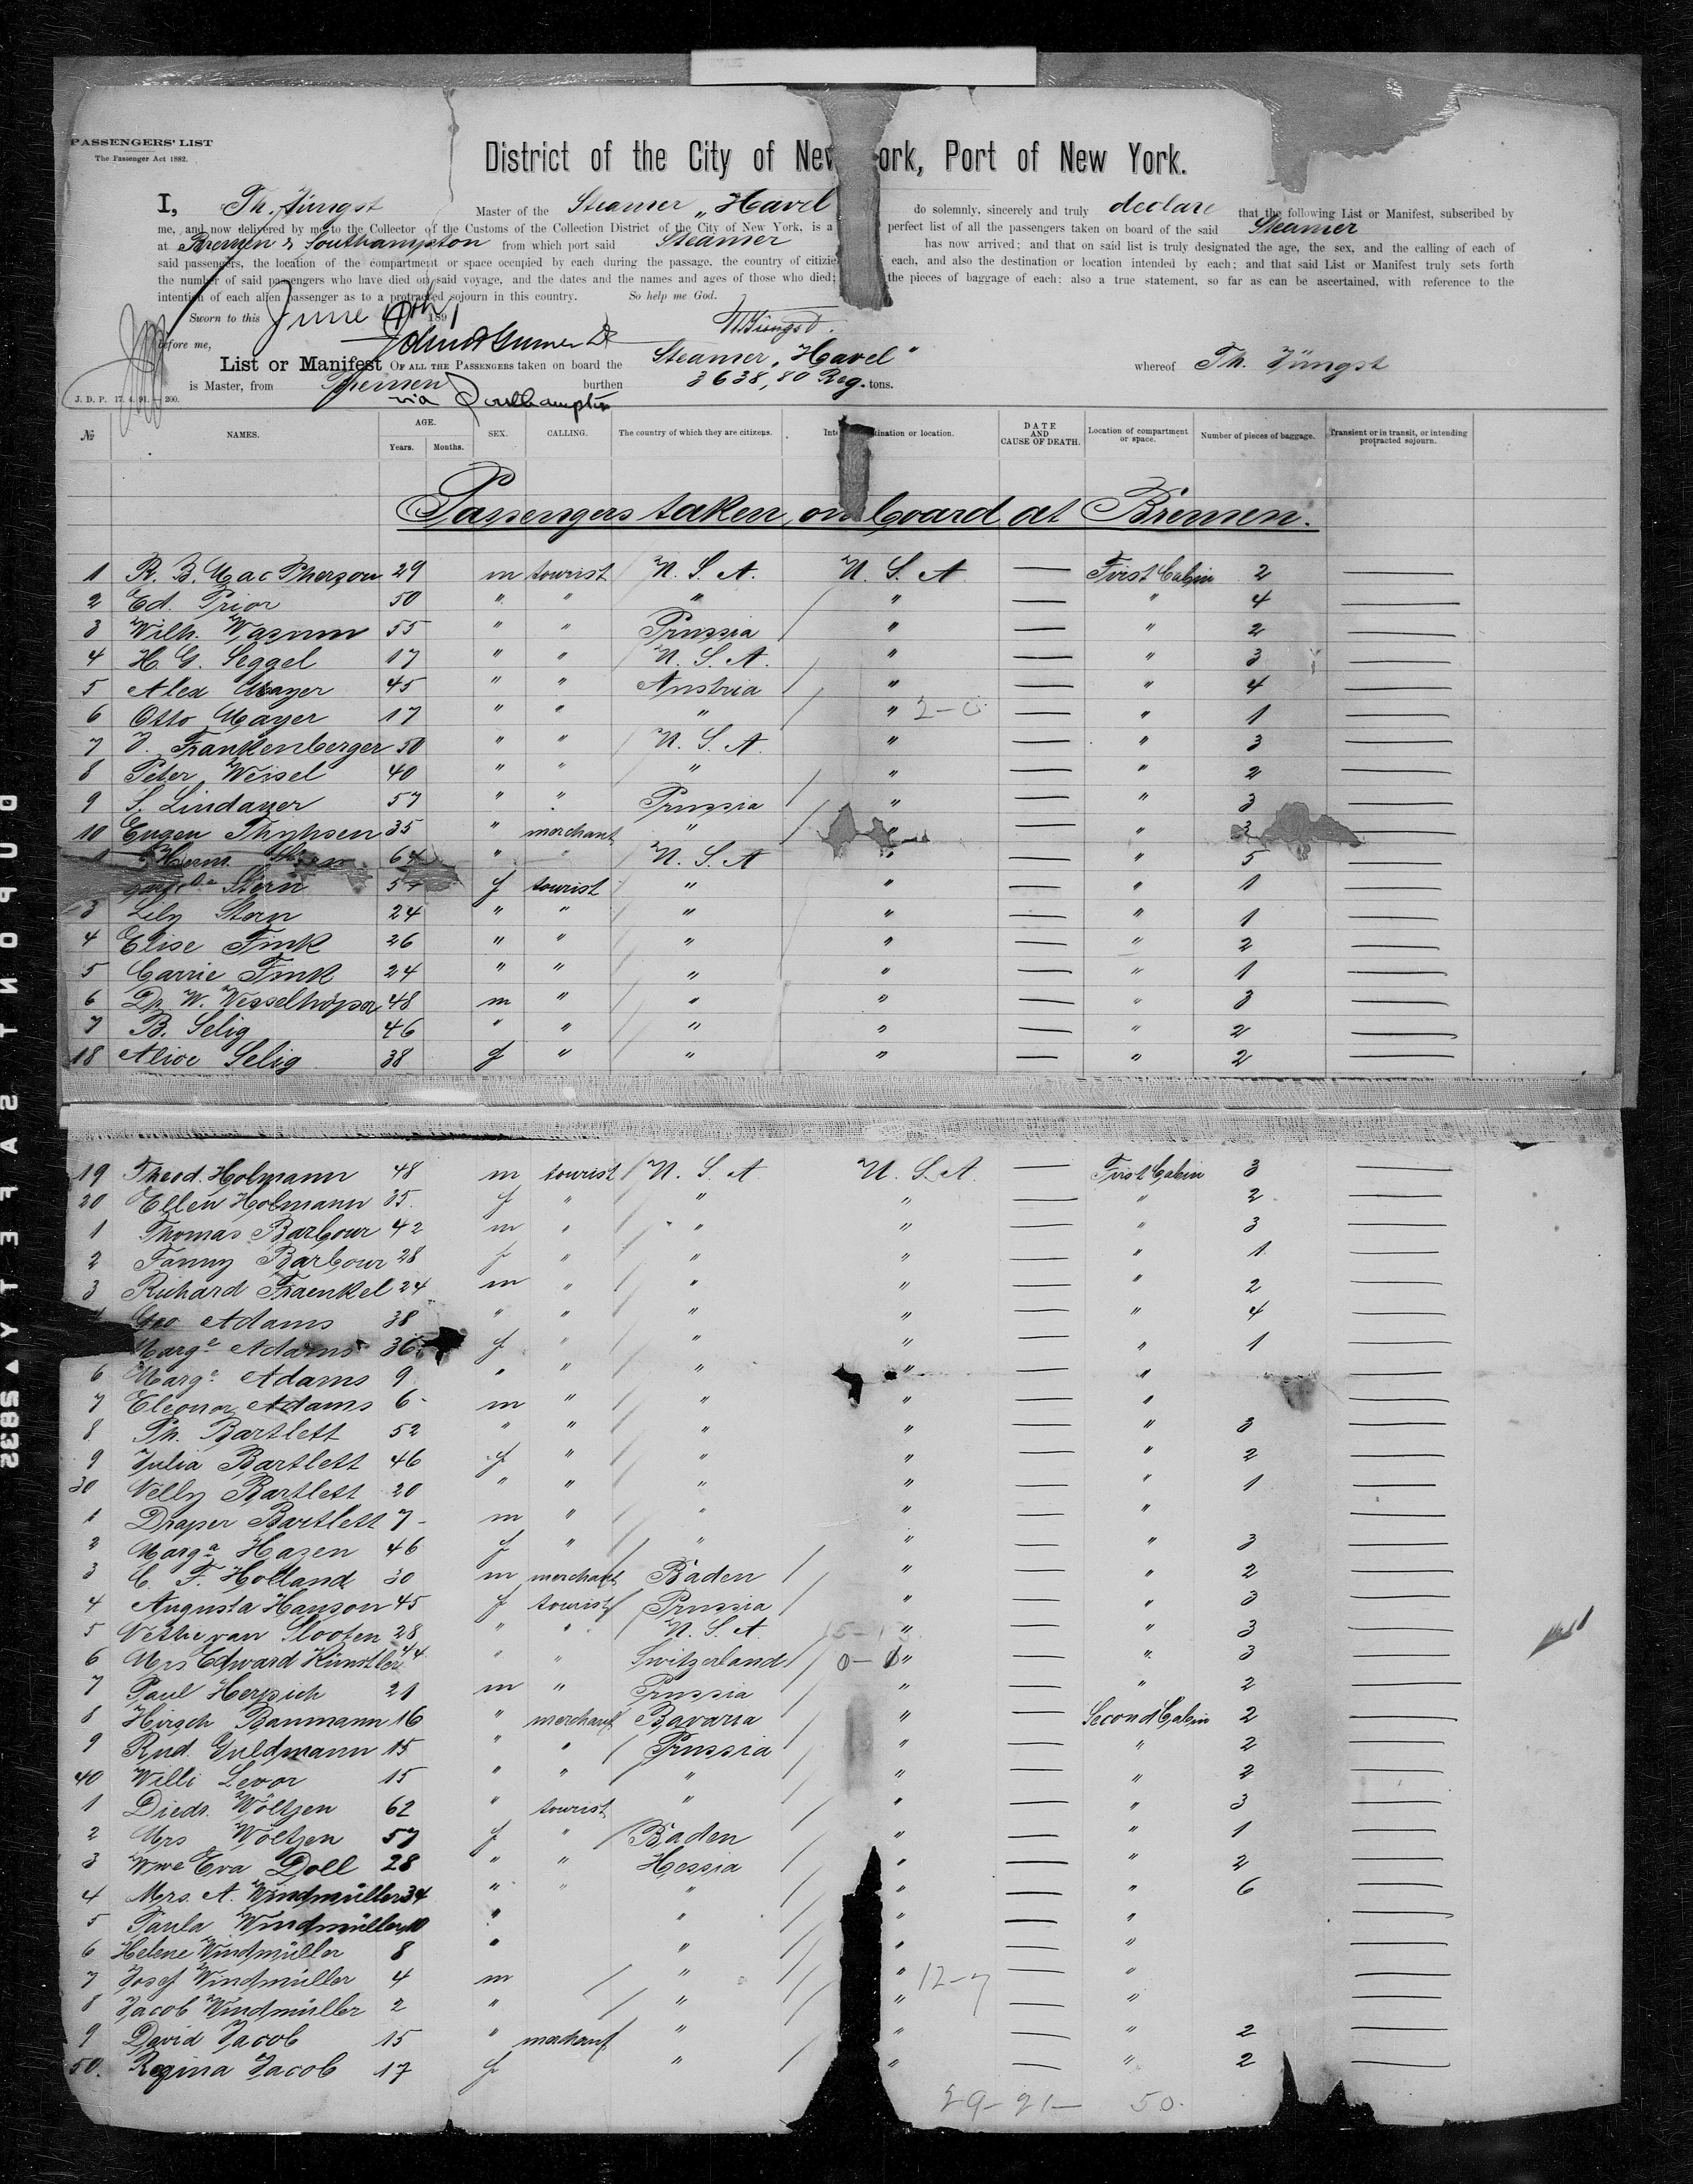 PASSENGERS' LIST
The Passenger Act 1882.
District of the City of New ork, Port of New York.
I, Th. Jüngst Master of the Steamer „Havel do solemnly, sincerely and truly declare that the following List or Manifest, subscribed by
me, and now delivered by me to the Collector of the Customs of the Collection District of the City of New York, is a perfect list of all the passengers taken on board of the said Steamer
at Bremen & Southampton from which port said Steamer has now arrived; and that on said list is truly designated the age, the sex, and the calling of each of
said passengers, the location of the compartment or space occupied by each during the passage, the country of citizie each, and also the destination or location intended by each; and that said List or Manifest truly sets forth
the number of said passengers who have died on said voyage, and the dates and the names and ages of those who died; the pieces of baggage of each; also a true statement, so far as can be ascertained, with reference to the
intention of each alien passenger as to a protracted sojourn in this country. So help me God.
Sworn to this June 1891
before me, Th Jüngst.
List or Manifest OF ALL THE PASSENGERS taken on board the Steamer „Havel" whereof Th. Jüngst
is Master, from Bremen burthen 3638,80 Reg. tons.
via Southampton
J. D. P. 17. 4. 91. — 200.
№ NAMES. AGE. Years. Months. SEX. CALLING. The country of which they are citizens. Int ination or location. DATE AND CAUSE OF DEATH. Location of compartment or space. Number of pieces of baggage. Transient or in transit, or intending protracted sojourn.
Passengers taken on board at Bremen.
1 R. B. Mac Pherson 29 m tourist U. S. A. U. S. A — First Cabin 2 —
2 Ed. Prior 50 " " " " — " 4 —
3 Wilh. Wasum 55 " " Prussia " — " 2 —
4 H. G. Seggel 17 " " U. S. A. " — " 3 —
5 Alex Mayer 45 " " Austria " — " 4 —
6 Otto Mayer 17 " " " " — " 1 —
7 J. Frankenberger 50 " " U. S. A. " — " 3 —
8 Peter Weisel 40 " " " " — " 2 —
9 S. Lindauer 57 " " Prussia " — " 3 —
10 Eugen Thyhsen 35 " merchant " " — " 3 —
Herm. 64 " " U. S. A " — " 5 —
Stern 54 f tourist " " — " 1 —
3 Lily Stern 24 " " " " — " 1 —
4 Elise Fink 26 " " " " — " 2 —
5 Carrie Fink 24 " " " " — " 1 —
6 Dr. W. 48 m " " " — " 3 —
7 B. Selig 46 " " " " — " 2 —
18 Alice Selig 38 f " " " — " 2 —
19 Theod. Holmann 48 m tourist U. S. A U. S. A. — First Cabin 3 —
20 Ellen Holmann 35. f " " " — " 2 —
1 Thomas Barbour 42 m " " " — " 3 —
2 Fanny Barbour 28 f " " " — " 1 —
3 Richard Fraenkel 24 m " " " — " 2 —
Geo Adams 38 " " " " — " 4 —
Marg.e Adams 36 f " " " — " 1 —
6 Marg.e Adams 9 " " " " — " —
7 Eleonor Adams 6 m " " " — " —
8 Ph. Bartlett 52 " " " " — " 3 —
9 Julia Bartlett 46 f " " " — " 2 —
30 Nelly Bartlett 20 " " " " — " 1 —
1 Draper Bartlett 7 m " " " — " —
2 Marg.a Hazen 46 f " " " — " 3 —
3 C. F. Holland 30 m merchant Baden " — " 2 —
4 Augusta Hanson 45 f tourist Prussia " — " 3 —
5 Nettie van Slooten 28 " " U. S. A. " — " 3 —
6 Mrs Edward Künstler 44 " " Switzerland 0- " — " 3 —
7 Paul Herpich 21 m " Prussia " — " 2 —
8 Hirsch Baumann 16 " merchant Bavaria " — Second Cabin 2 —
9 Rud. Guldmann 15 " " Prussia " — " 2 —
40 Willi Levor 15 " " " " — " 2 —
1 Diedr. Wöltjen 62 " tourist " " — " 3 —
2 Mrs Wöltjen 57 f " Baden " — " 1 —
3 Wwe Eva Doll 28 " " Hessia " — " 2 —
4 Mrs. A. Windmüller 34 " " " " — " 6 —
5 Paula Windmüller 10 " " " — " —
6 Helene Windmüller 8 " " " — " —
7 Josef Windmüller 4 m " " 12-7 — " —
8 Jacob Windmüller 2 " " " — " —
9 David Jacob 15 " merchant " " — " 2 —
50. Regina Jacob 17 f " " — " 2 —
29-21- 50.
DUPONT SAFETY ▲ S835